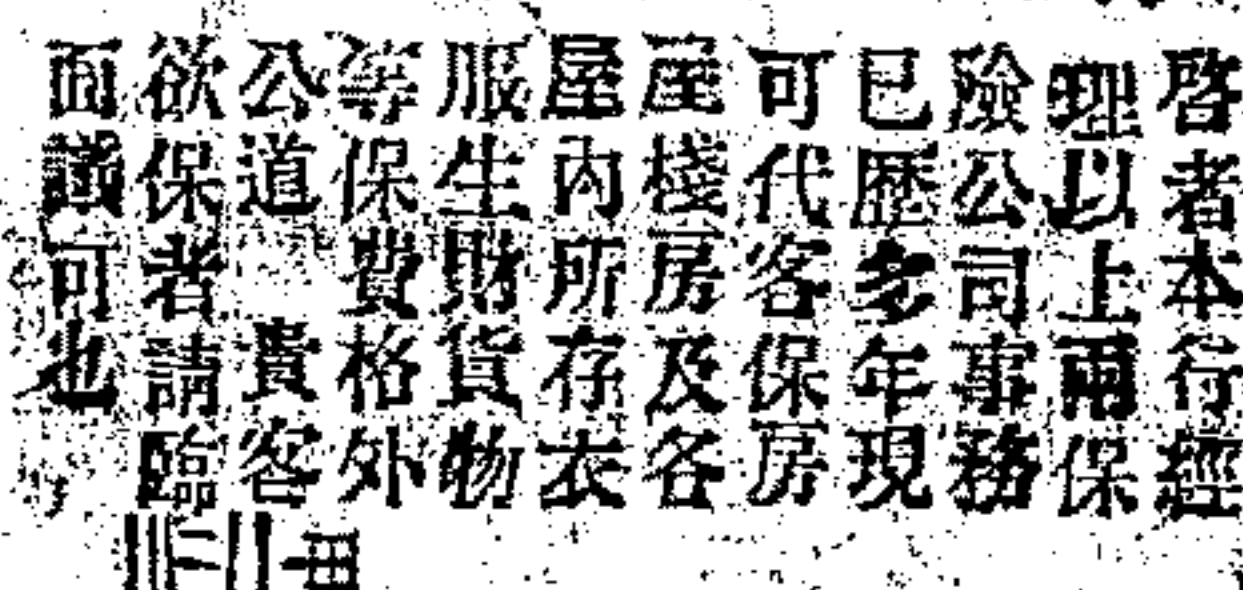 啓者本行經
理以上兩保
險公司事務
已歷多年現
可代客保房
屋棧房及各
屋內所存衣
服生財貨物
等保費格外
公道 貴客
欲保者請臨
面議可也